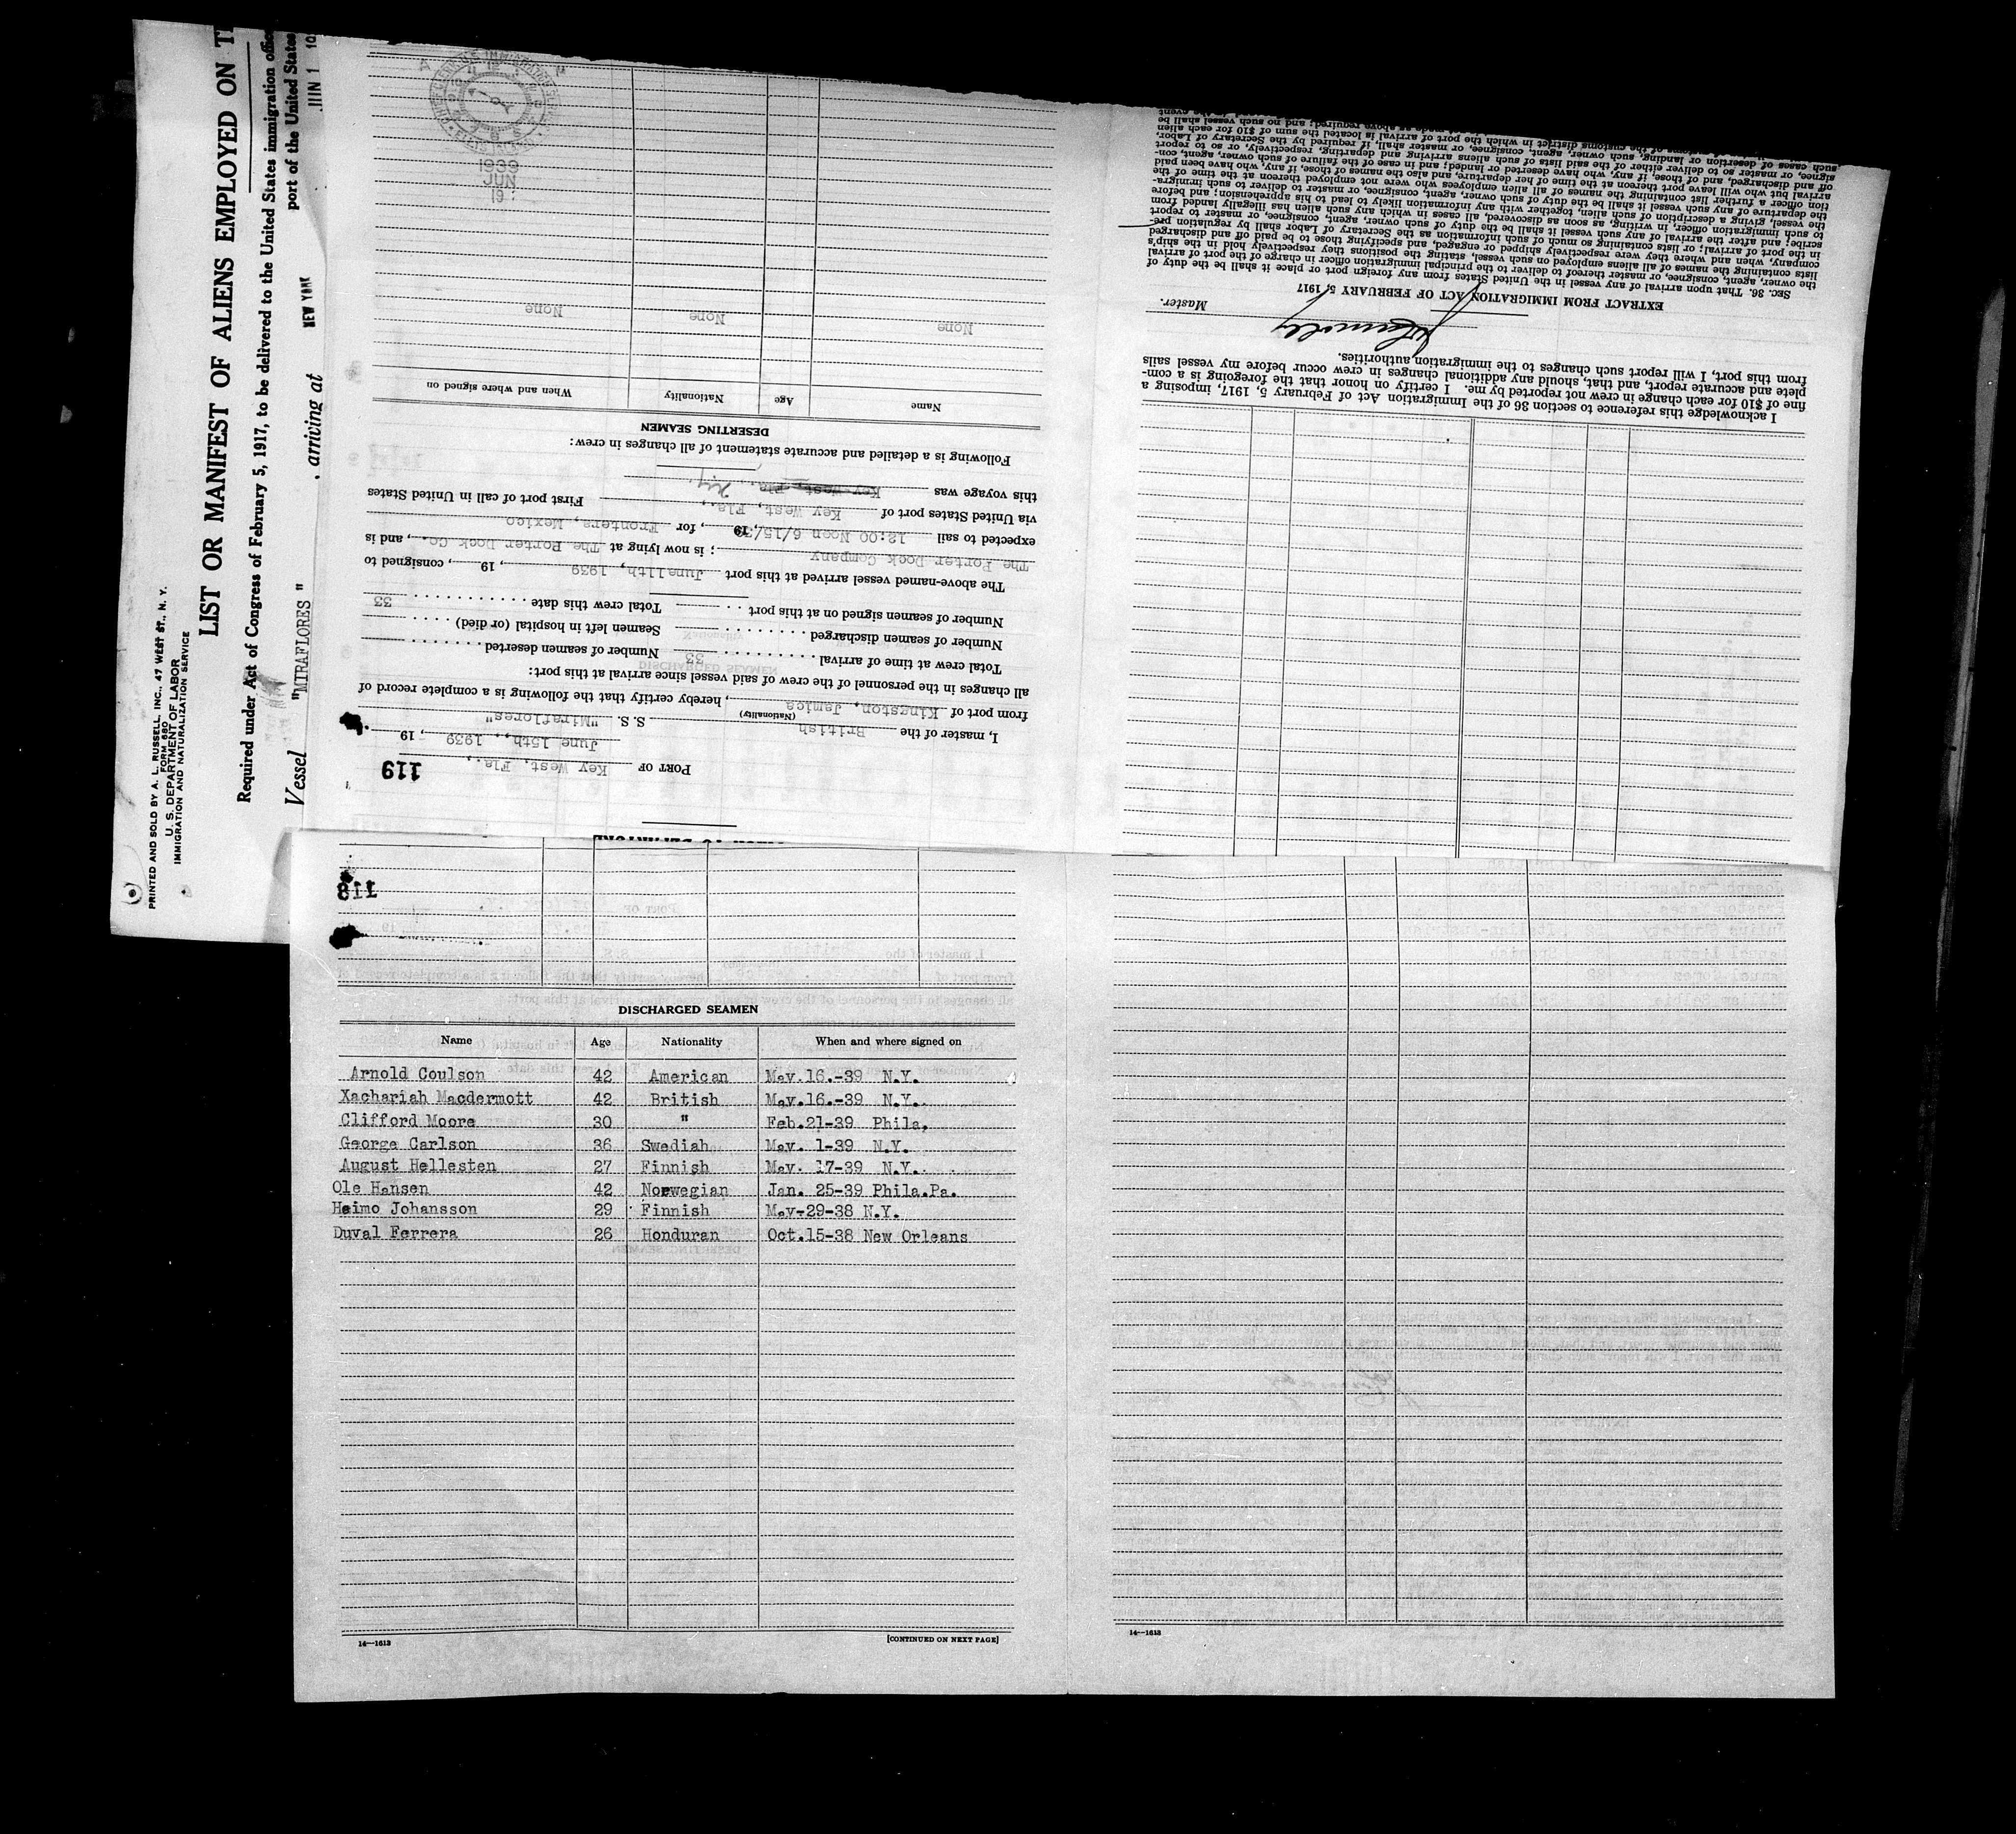 PRINTED AND SOLD BY A. L. RUSSELL, INC., 47 WEST ST., N. Y.
FORM 680
U. S. DEPARTMENT OF LABOR
IMMIGRATION AND NATURALIZATION SERVICE
LIST OR MANIFEST OF ALIENS EMPLOYED ON
Required under Act of Congress of February 5, 1917, to be delivered to the United States immigration
port of the United States
Vessel "MIRAFLORES" , arriving at NEW YORK
119
PORT OF Key West, Fla.,
June 15th,, 1939, 19
I, master of the British S. S. "Miraflores"
(Nationality)
from port of Kingston, Jamica, hereby certify that the following is a complete record of
all changes in the personnel of the crew of said vessel since arrival at this port:
Total crew at time of arrival 33 Number of seamen deserted
Number of seamen discharged Seamen left in hospital (or died)
Number of seamen signed on at this port Total crew this date 33
The above-named vessel arrived at this port June11th, 1939, 19, consigned to
The Porter Dock Company; is now lying at The Porter Dock Co., and is
expected to sail 12:00 Noon 6/15/39, 19, for Frontera, Mexico
via United States port of Key West, Fla., First port of call in United States
this voyage was Key West, Fla. N.Y.
Following is a detailed and accurate statement of all changes in crew:
DESERTING SEAMEN
Name Age Nationality When and where signed on
None None None
1939
JUN
19
I acknowledge this reference to section 36 of the Immigration Act of February 5, 1917, imposing a
fine of $10 for each change in crew not reported by me. I certify on honor that the foregoing is a com-
plete and accurate report, and that, should any additional changes in crew occur before my vessel sails
from this port, I will report such changes to the immigration authorities.
Master.
EXTRACT FROM IMMIGRATION ACT OF FEBRUARY 5, 1917
SEC. 36. That upon arrival of any vessel in the United States from any foreign port or place it shall be the duty of
the owner, agent, consignee, or master thereof to deliver to the principal immigration officer in charge of the port of arrival
lists containing the names of all aliens employed on such vessel, stating the positions they respectively hold in the ship's
company, when and where they were respectively shipped or engaged, and specifying those to be paid off and discharged
in the port of arrival; or lists containing so much of such information as the Secretary of Labor shall by regulation pre-
scribe; and after the arrival of any such vessel it shall be the duty of such owner, agent, consignee, or master to report
to such immigration officer, in writing, as soon as discovered, all cases in which any such alien has illegally landed from
the vessel, giving a description of such alien, together with any information likely to lead to his apprehension; and before
the departure of any such vessel it shall be the duty of such owner, agent, consignee, or master to deliver to such immigra-
tion officer a further list containing the names of all alien employees who were not employed thereon at the time of the
arrival but who will leave port thereon at the time of her departure, and also the names of those, if any, who have been paid
off and discharged, and of those, if any, who have deserted or landed; and in case of the failure of such owner, agent, con-
signee, or master so to deliver either of the said lists of such aliens arriving and departing, respectively, or so to report
such cases of desertion or landing, such owner, agent, consignee, or master shall, if required by the Secretary of Labor,
of the customs district in which the port of arrival is located the sum of $10 for each alien
as above required; and no such vessel shall be
118
DISCHARGED SEAMEN
Name Age Nationality When and where signed on
Arnold Coulson 42 American May.16.-39 N.Y.
Xachariah Macdermott 42 British May.16.-39 N.Y.
Clifford Moore 30 " Feb.21-39 Phila.
George Carlson 36 Swediah May. 1-39 N.Y.
August Hellesten 27 Finnish May. 17-39 N.Y.
Ole Hansen 42 Norwegian Jan. 25-39 Phila.Pa.
Heimo Johansson 29 Finnish May-29-38 N.Y.
Duval Ferrera 26 Honduran Oct.15-38 New Orleans
14—1613 [CONTINUED ON NEXT PAGE]
14—1613